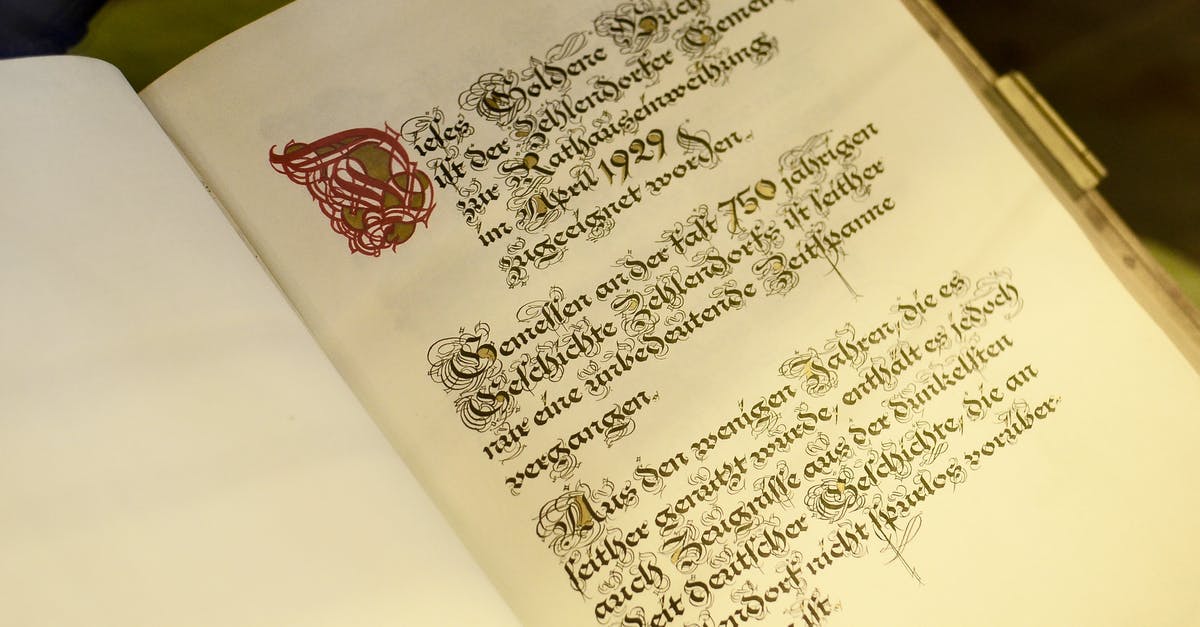 Dieses Goldene Buch
ist der Zehlendorfer Gemein
zur Rathauseinweihung
im April 1929
zugeeignet worden.
Gemessen an der fast 750 jährigen
Geschichte Zehlendorfs ist seither
nur eine unbedeutende Zeitspanne
vergangen.
Aus den wenigen Jahren, die es
seither genutzt wurde, enthält es jedoch
auch Zeugnisse aus der dunkelsten
Zeit deutscher Geschichte, die an
lendorf nicht spurlos vorüber-
ist.